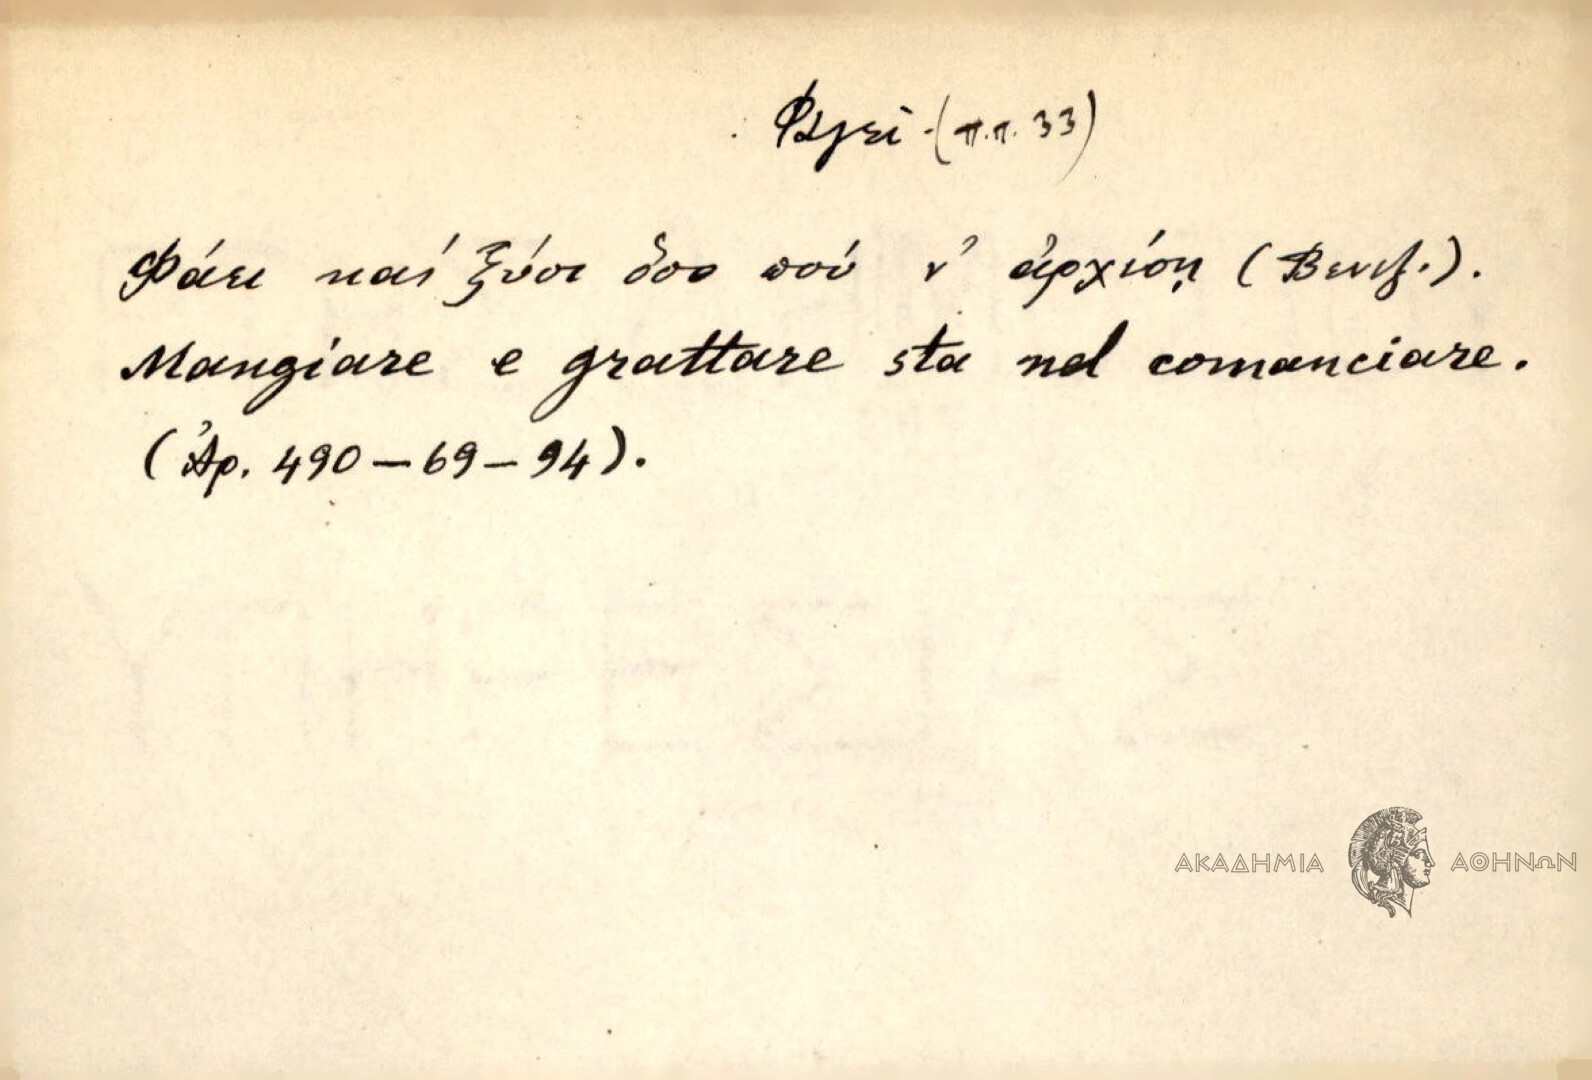 Φαγεῖ (π.π. 33)
Φάει καὶ ξύσι ὅσο πού ν' ἀρχίσῃ (Βενιζ.).
Mangiare e grattare sta nel comanciare.
(Ἀρ. 490 – 69 – 94).
ΑΚΑΔΗΜΙΑ ΑΘΗΝΩΝ